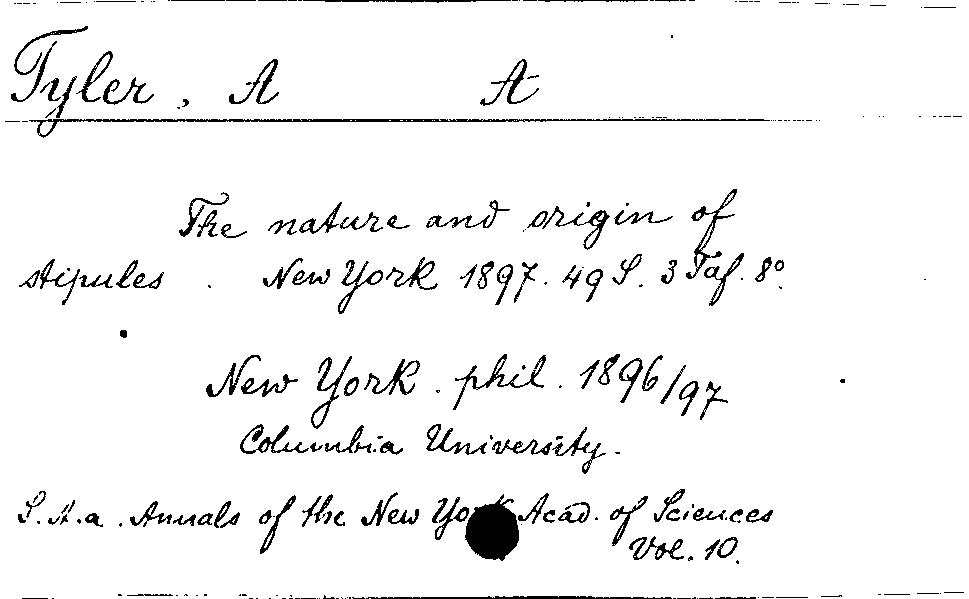 Tyler, A A
The nature and origin of
stipules. New York 1897. 49 S. 3 Taf. 8°.
New York. phil. 1896/97
Columbia University.
S.A.a. Annals of the New York Acad. of Sciences
Vol. 10.